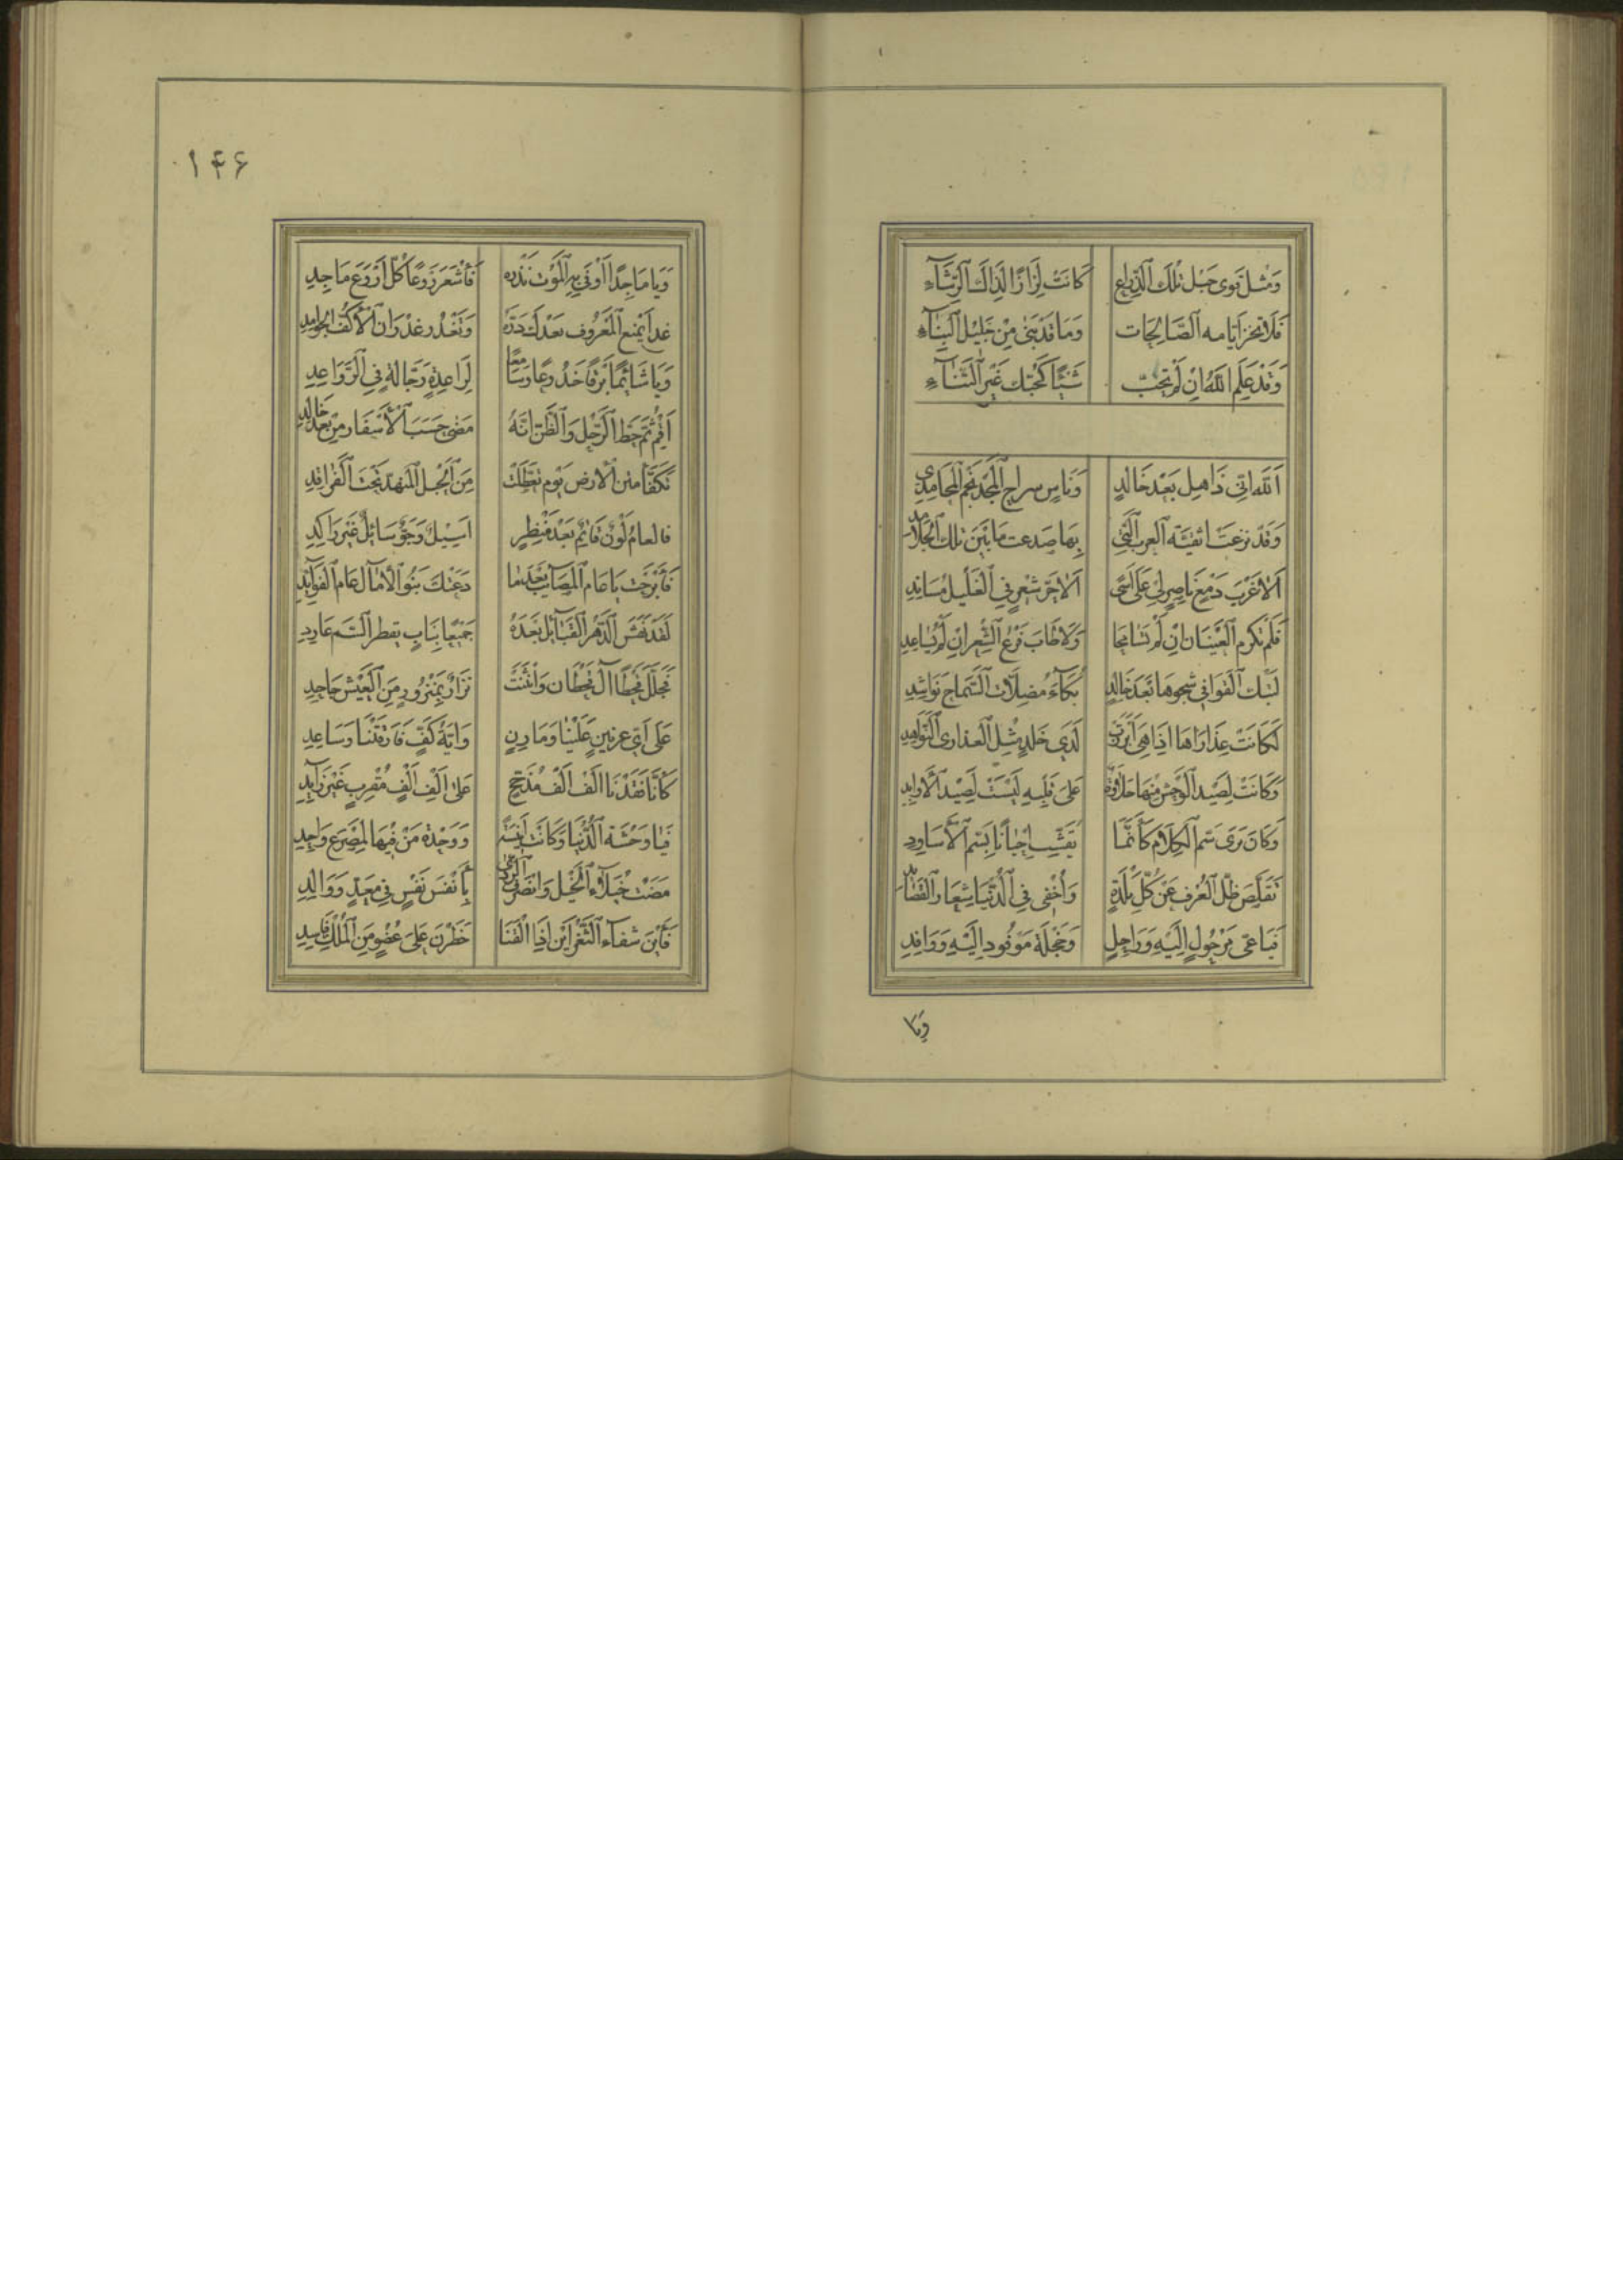 وَمثل قوى حبل تلك الذراع كانت لزازًا لذاك الرشآء
فلا تخز ايامه الصّالحات وما قد بنى من جليل البنآء
وقد علم الله ان لم تحبّ شيئًا كحبّك غير الثنآء
اَلله انّى ذاهل بعد خالد وناسٍ سراج المجد نجم المحامدِ
وقد نزعت اثفيّة العرب الّتي بها صدعت ما بين تلك الجلامد
الا غرب دمعٍ ناصر لي على اَسًى الا حرّ شعرٍ في الغليل مساندِ
فلم تكرم العينان ان لم تسامحا ولا طاب فرع الشعر ان لم يساعدِ
لتبك القوافي شجوها بعد خالدٍ بكآء مضلات السّماح نواشدِ
لكانت عذاراها اذا هى ابرزت لدى خلدٍ مثل العذارى النّواهد
وكانت لصيد الوحش منها حلاوة على قلبه ليست لصيد الاوابدِ
وكان يرى سمّ الكلام كأنّما يقشّب احيانًا بسمّ الاساودِ
تقلّص ظلّ العرف عن كلّ بلدةٍ واُخفى في الدّنيا شعار القصائد
فيا عىّ مرحولٍ اليه وراحلٍ وخجلة موفود اليه ووافدِ
وَيَا
١٤۶
ويا ماجدًا اوفى به الموت نذره فاشعر روعًا كلّ اروع ماجدِ
غدا يمنع المعروف بعدك درّه وتغدر غدران الاكفّ الجوامد
ويا شائمًا برقًا خدوعًا وسامعًا لراعدةٍ دجّالة في الرّواعدِ
اقم ثمّ حط الرّحل والظّن انّه مضى حسب الاسفار من بعد خالد
تكفّأ متن الارض يوم تعطّلت من الجبل المنهدّ تحت الفراقد
فالعام لونٌ قاتم بعد منظرٍ اسيلٌ وجوٌّ سائلٌ غير راكدِ
فأبرحت يا عام المصآيب بعدما دعتك بنو الامآل عام الفوآئد
لقد نهس الدّهر القبآئل بعده جميعًا بنابٍ يقطر السّم عاردِ
فجلّل قحطًا آل قحطان وانثنت نزارٌ بمنزورٍ من العيش جاحدِ
على اىّ عرنينٍ علينا ومارنٍ وايّة كفٍّ فارقتنا وساعدِ
كأنّا فقدنا الف الف مدجّجٍ على الف الف مقربٍ غير زآيدِ
فيا وحشة الدّنيا وكانت انيسة ووحدة من فيها لمصرع واحدِ
مضت خيلآء الخيل وانصرف الرّدى بأنفس نفسٍ في معدٍّ ووالدِ
فأين شفآء الثّغر اين اذا القنا خطرن على عضوٍ من الملك فاسدِ